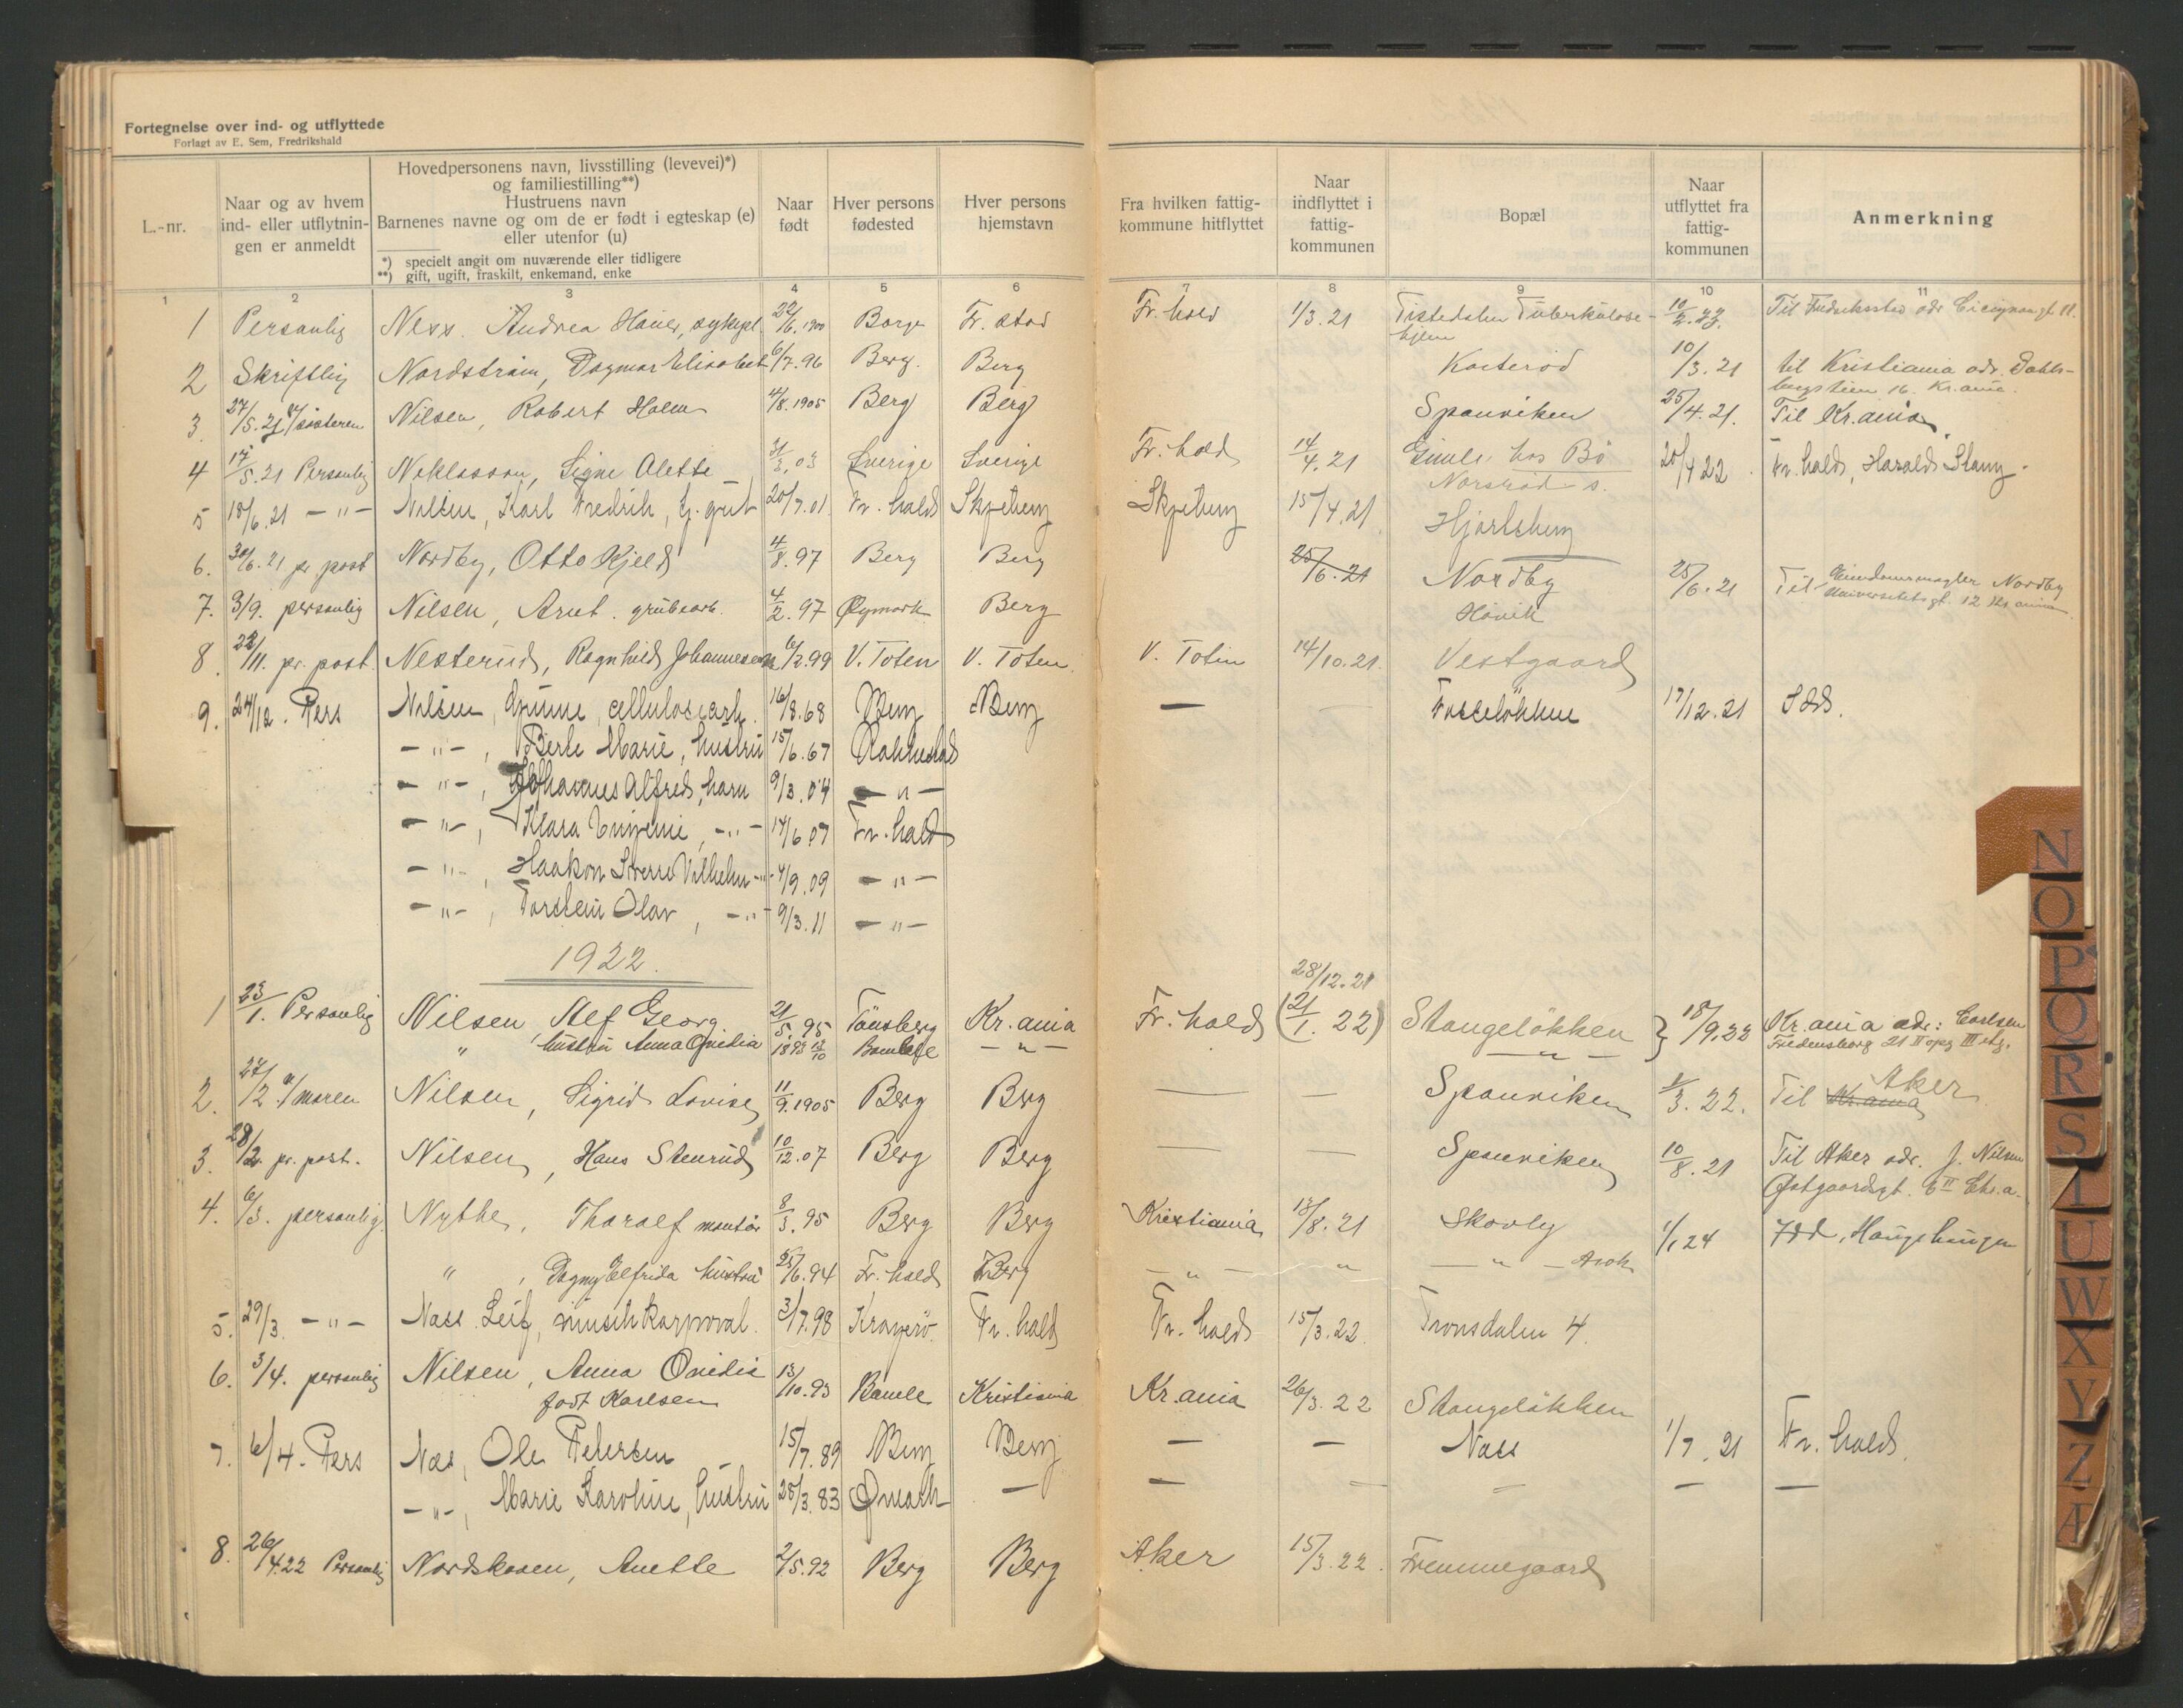 Fortegnelse over ind- og utflyttede
Forlagt av E. Sem, Fredrikshald
L.-nr.
Naar og av hvem ind- eller utflytningen er anmeldt
Hovedpersonens navn, livsstilling (levevei)*)
og familiestilling**)
Hustruens navn
Barnenes navne og om de er født i egteskap (e)
eller utenfor (u)
*) specielt angit om nuværende eller tidligere
**) gift, ugift, fraskilt, enkemand, enke
Naar født
Hver persons fødested
Hver persons hjemstavn
Fra hvilken fattigkommune hitflyttet
Naar indflyttet i fattigkommunen
Bopæl
Naar utflyttet fra fattigkommunen
Anmerkning
1 2 3 4 5 6 7 8 9 10 11
1 Personlig Ness. Andrea 22/6.1900 Borge Fr. stad Fr. hald 1/3.21 Tistedalen Tuberkulosehjem Til Fredriksstad adr
2 Skriftlig Nordstrøm, Dagmar Elisabet 6/7.96 Berg. Berg 10/3.21 til Kristiania adr. Kr.ania.
3. 27/5.21 søsteren Nilsen, Robert Holm 4/8.1905 Berg Berg Sponviken 25/4.21. Til Kr.ania
4 17/5.21 Personlig Neklasson, Signe Alette 31/3.03 Sverige Sverige Fr. hald 14/4.21 Gimle hos Bø 20/4 22. Fr. hald, Harald Stang.
5 18/6.21 -"- Nilsen, Karl Fredrik, 20/7.01 Fr. hald Skjeberg Skjeberg 15/4.21 Hjortsberg
6. 30/6.21 pr post Nordby, Otto Kjeld 4/8.97 Berg Berg 25/6.21 Nordby 25/6.21 Til Eiendomsmægler Nordby
Universitetsgt. 12 Kr.ania
7. 3/9. personlig Nilsen, Arnt. grubearb. 4/2.97 Øymark Berg Høvik
8. 22/11. pr. post. Nesterud, Ragnhild Johannesen 6/2.99 V. Toten V. Toten. V. Toten 14/10.21. Vestgaard
9. 24/12. Pers Nilsen, Gunne, cellulosearb. 16/8.68 Berg Berg — Fosseløkken 17/12.21 Idd.
-"-, Berte Marie, hustru 15/6.67 Rakkestad
-"-, Johannes Alfred, barn 9/3.04 -"-
-"-, Klara -"- 14/6.07 Fr. hald
-"-, Haakon Sverre Vilhelm -"- 4/9.09 -"-
-"-, Torstein Olav, -"- 9/3.11 -"-
1922.
28/12.21
1 23/1. Personlig Nilsen, Alf Georg 21/5.95 Tønsberg Kr.ania Fr. hald (2/1.22) Stangeløkken } 18/9.22 Kr.ania adr: Carlsen
" hustru Anna Ovidia 1893 13/10 Bamble -"- -"- Fredensborg 21 II opg III etg.
2. 27/2 v/moren Nilsen, Sigrid Lovise 11/9.1905 Berg Berg — — Sponviken 1/3.22. Til Kr.ania Aker
3. 28/2. pr. post. Nilsen, Hans Stenrud 10/12.07 Berg Berg — — Sponviken 10/8.21 Til Aker adr. J. Nilsen
4. 6/3. personlig. Nythe, Tharalf montør 8/3.95 Berg Berg Kristiania 13/8.21 Skovly 1/1 24 Idd,
" , Dagny Elfrida hustru 25/6.94 Fr. hald Berg -"- " -"-
5. 29/3. -"- Næss Leif, musikkorporal. 3/7.98 Kragerø Fr. hald Fr. hald 15/3.22. Tronsdalen 4.
6. 3/4. personlig Nilsen, Anna Ovidia 13/10.93 Bamle Kristiania Kr.ania 26/3.22 Stangeløkken
født Karlsen
7. 6/4. Pers Næs, Ole Petersen 15/7.89 Berg Berg — — Næss 1/7.21 Fr. hald.
-"-, Marie Karoline, hustru 28/3.83 Ømark — — — — — —
8. 26/4.22 Personlig Nordskoven, Anette 2/5.92 Berg Berg Aker 15/3.22. Fremmegaard
N
O
P
Q
R
S
T
U
W
X
Y
Z
Æ